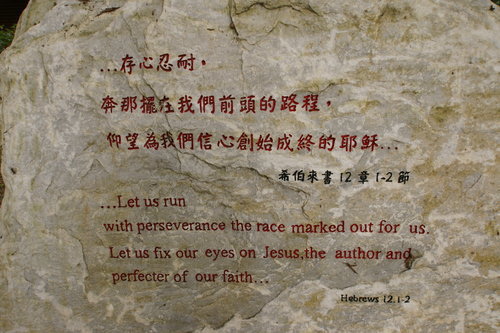 ...存心忍耐，
奔那擺在我們前頭的路程，
仰望為我們信心創始成終的耶穌...
希伯來書 12 章 1-2 節
...Let us run
with perseverance the race marked out for us.
Let us fix our eyes on Jesus,the author and
perfecter of our faith...
Hebrews 12.1-2